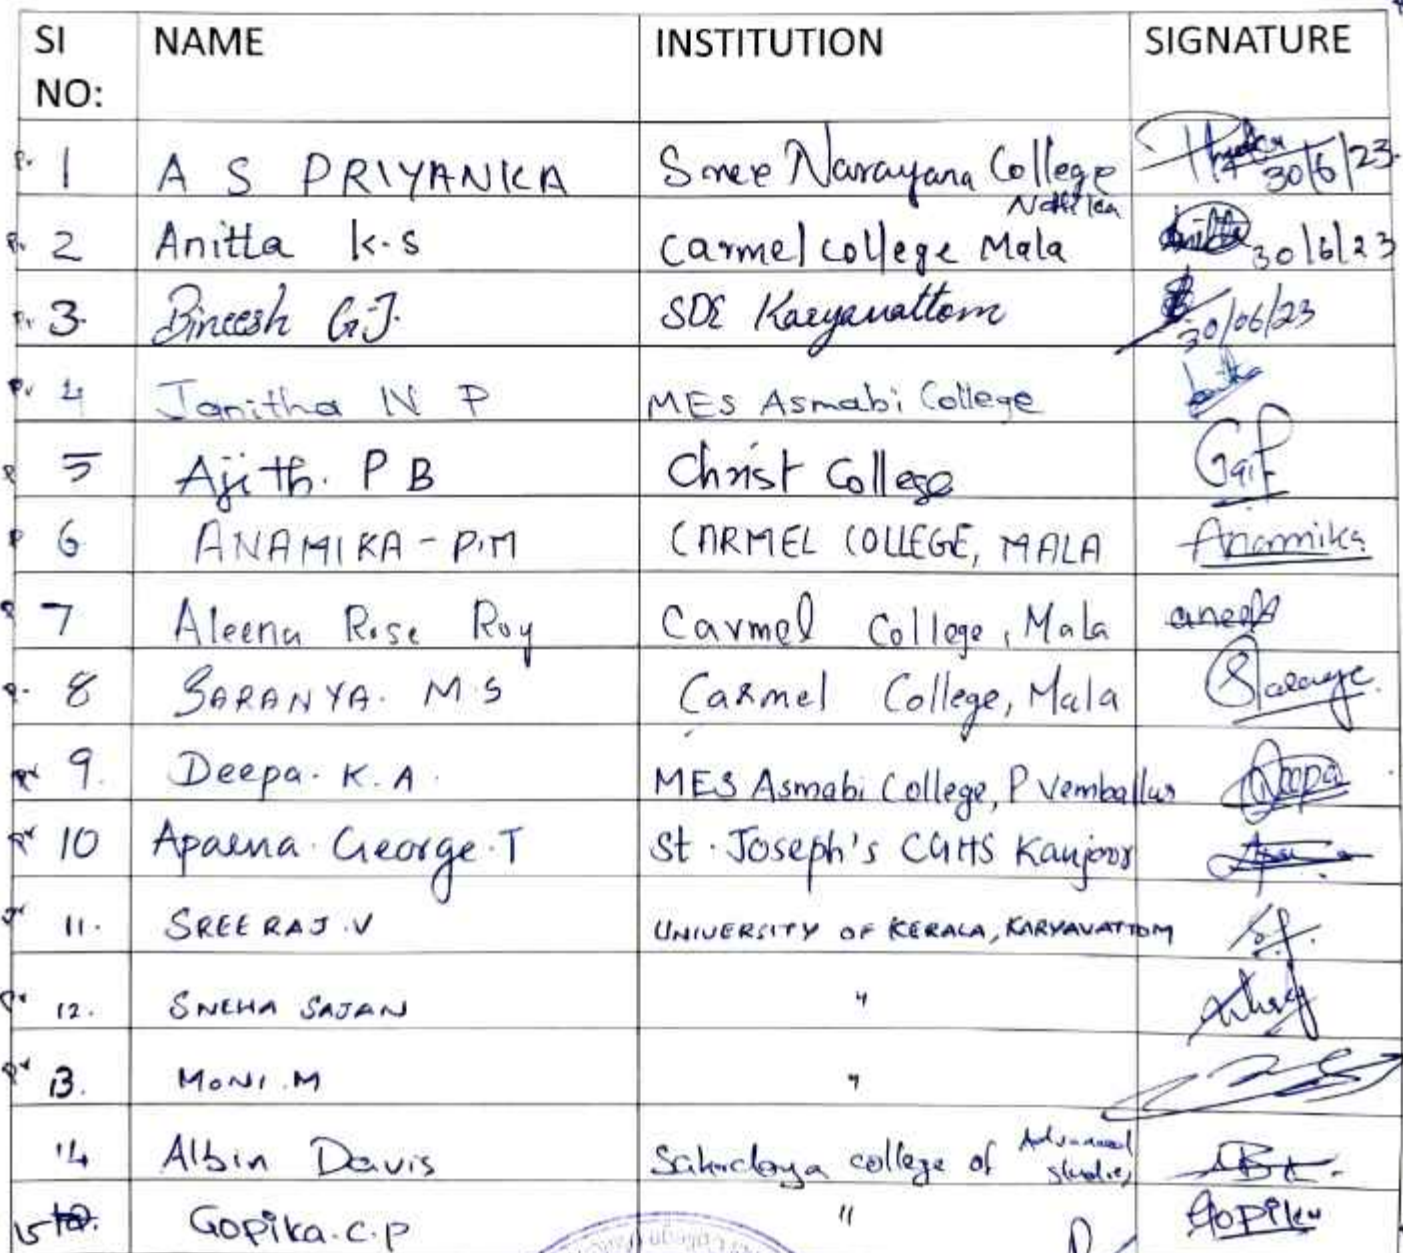 SI NO: NAME INSTITUTION SIGNATURE
1 A S PRIYANKA Sree Narayana College Nattika 30/6/23
2 Anitta K.S Carmel college Mala 30/6/23
3. Bineesh G.J. SDE Karyavattom 30/06/23
4 Janitha N P MES Asmabi College
5 Ajith. P B Christ College
6 ANAMIKA - P.M CARMEL COLLEGE, MALA Anamika
7 Aleena Rose Roy Carmel College, Mala
8 SARANYA. M.S Carmel College, Mala
9. Deepa. K.A. MES Asmabi College, P Vemballur Deepa
10 Aparna. George. T St. Joseph's CGHS Kanjoor
11. SREERAJ.V UNIVERSITY OF KERALA, KARYAVATTOM
12. SNEHA SAJAN "
13. MONI.M "
14 Albin Davis Sahrdaya college of Advanced studies
15 Gopika.C.P " Gopika